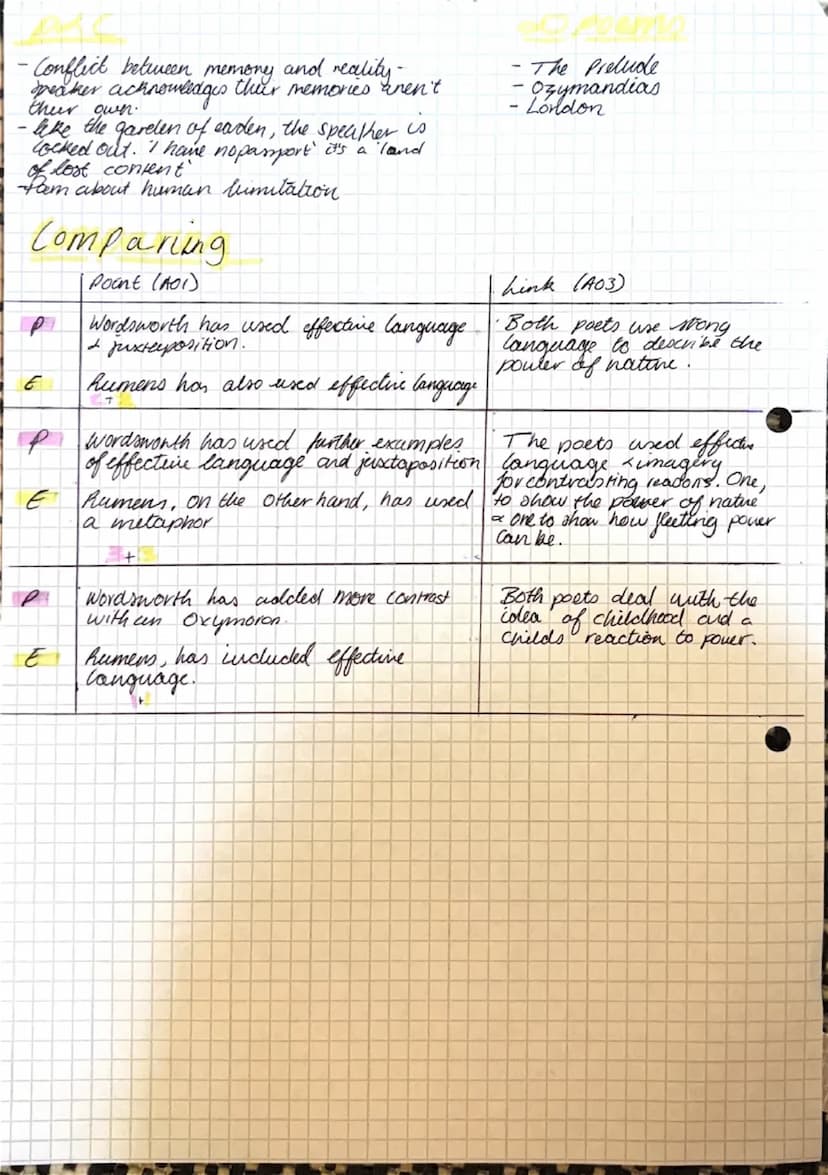 - Conflict between memory and reality -
speaker acknowledges their memories aren't
their own.
- like the garden of eaden, the speaker is
locked out. 'I have no passport' it's a 'land
of lost content'
- Poem about human limitation
- The Prelude
- Ozymandias
- London
Comparing
Point (AO1)
Link (AO3)
P
Wordsworth has used effective language
& juxtaposition.
E
Rumens has also used effective language
Both poets use strong
language to describe the
power of nature.
P
Wordsworth has used further examples
of effective language and juxtaposition
E
Rumens, on the other hand, has used
a metaphor
3+3
The poets used effective
language & imagery
for contrasting reasons. One,
to show the power of nature
& one to show how fleeting power
can be.
P
Wordsworth has added more contrast
with an Oxymoron.
E
Rumens, has included effective
language.
Both poets deal with the
idea of childhood and a
childs reaction to power.